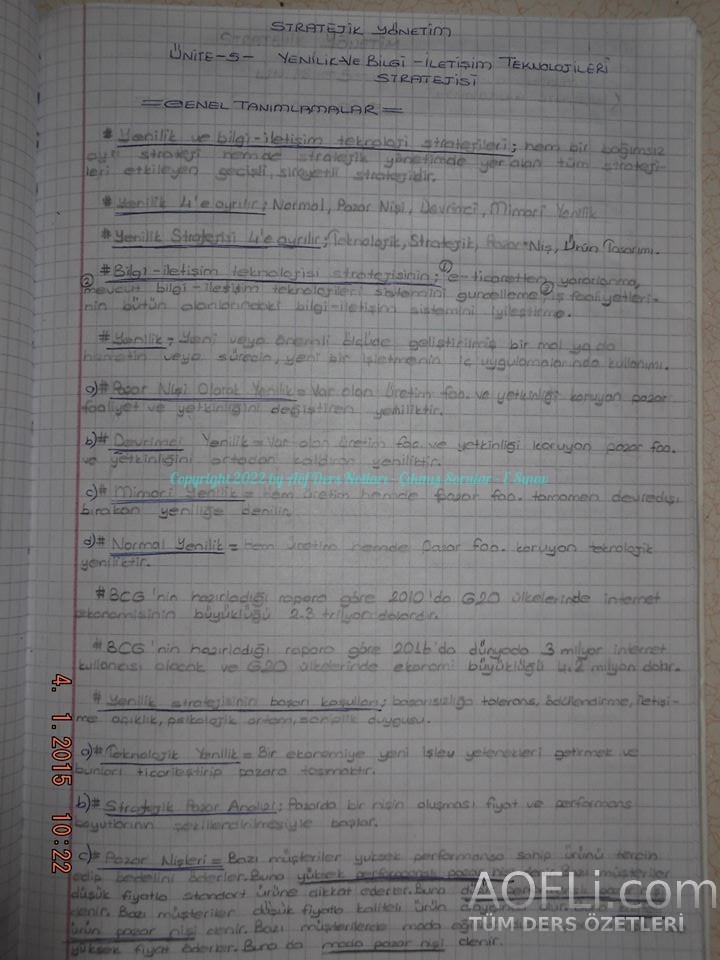 STRATEJİK YÖNETİM
ÜNİTE-5- YENİLİK VE BİLGİ-İLETİŞİM TEKNOLOJİLERİ
STRATEJİSİ
=GENEL TANIMLAMALAR=
# Yenilik ve bilgi-iletişim teknoloji stratejileri; hem bir bağımsız
ayrı strateji hemde stratejik yönetimde yer alan tüm strateji-
leri etkileyen geçişli, sirayetli stratejidir.
# Yenilik 4'e ayrılır; Normal, Pazar Nişi, Devrimci, Mimari Yenilik
# Yenilik Stratejisi 4'e ayrılır; Teknolojik, Stratejik, Pazar Niş, Ürün Tasarımı.
# Bilgi-iletişim teknolojisi stratejisinin; ① e-ticaretten yararlanma,
② mevcut bilgi-iletişim teknolojileri sistemini güncelleme, ③ iş faaliyetleri-
nin bütün alanlarındaki bilgi-iletişim sistemini iyileştirme.
# Yenilik = Yeni veya önemli ölçüde geliştirilmiş bir mal ya da
hizmetin veya sürecin, yeni bir işletmenin iç uygulamalarında kullanımı.
a)# Pazar Nişi Olarak Yenilik = Var olan üretim faa. ve yetkinliği koruyan pazar
faaliyet ve yetkinliğini değiştiren yeniliktir.
b)# Devrimci Yenilik = Var olan üretim faa. ve yetkinliği koruyan pazar faa.
ve yetkinliğini ortadan kaldıran yeniliktir.
Copyright 2022 by Aöf Ders Notları - Çıkmış Sorular - T Sınav
c)# Mimari Yenilik = hem üretim hemde pazar faa. tamamen devredışı
bırakan yeniliğe denilir.
d)# Normal Yenilik = hem üretim hemde pazar faa. koruyan teknolojik
yeniliktir.
# BCG'nin hazırladığı rapora göre 2010'da G20 ülkelerinde internet
ekonomisinin büyüklüğü 2.3 trilyon dolardır.
# BCG'nin hazırladığı rapora göre 2016'da dünyada 3 milyar internet
kullanıcısı olacak ve G20 ülkelerinde ekonomi büyüklüğü 4.2 milyon dolar.
# Yenilik stratejisinin başarı koşulları; başarısızlığa tolerans, ödüllendirme, iletişi-
me açıklık, psikolojik ortam, sahiplik duygusu.
a)# Teknolojik Yenilik = Bir ekonomiye yeni işlev yetenekleri getirmek ve
bunları ticarileştirip pazara taşımaktır.
b)# Stratejik Pazar Analizi; Pazarda bir nişin oluşması fiyat ve performans
boyutlarının şekillendirilmesiyle başlar.
c)# Pazar Nişleri = Bazı müşteriler yüksek performansa sahip ürünü tercih
edip bedelini öderler. Buna yüksek performanslı müşteriler
düşük fiyatla standart ürüne dikkat ederler. Buna
denir. Bazı müşteriler düşük fiyatla kaliteli ürün
ürün pazar nişi denir. Bazı müşterilerde moda
yüksek fiyat öderler. Buna da moda pazar nişi denir.
AOFLi.com
TÜM DERS ÖZETLERİ
4. 1. 2015 10:22